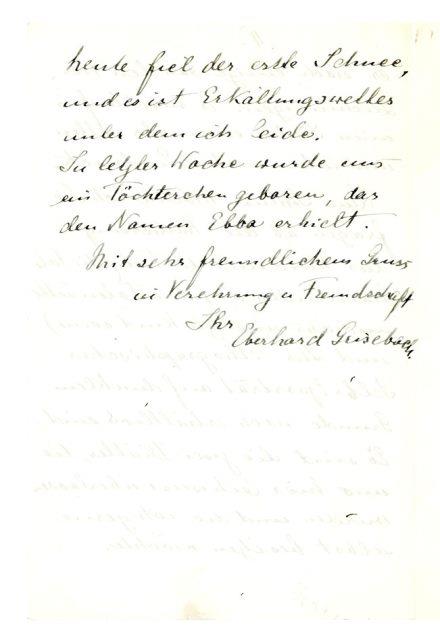 heute fiel der erste Schnee,
und es ist Erkältungswetter
unter dem ich leide.
In letzter Woche wurde uns
ein Töchterchen geboren, das
den Namen Ebba erhielt.
Mit sehr freundlichem Gruss
in Verehrung u Freundschaft
Ihr
Eberhard Grisebach.